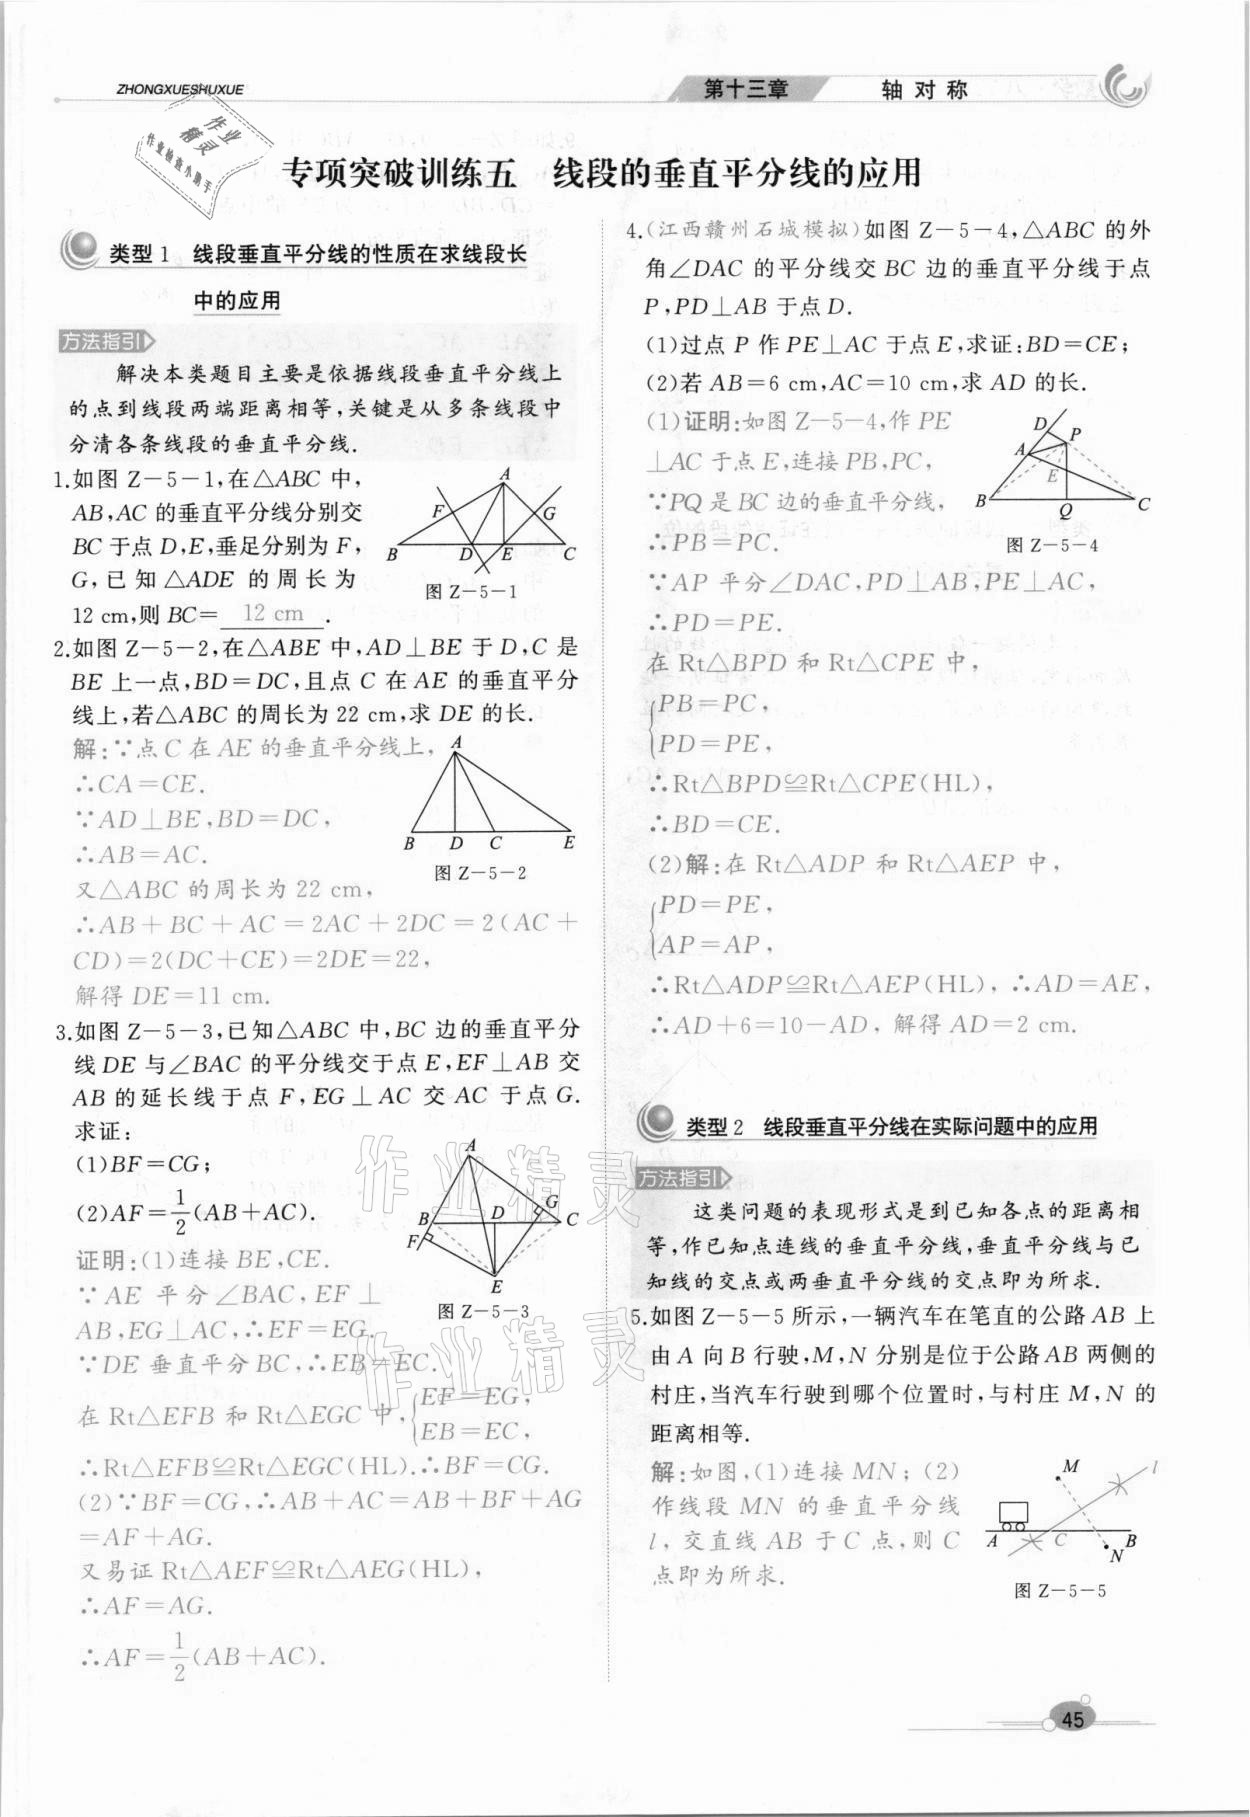 ZHONGXUESHUXUE
第十三章 轴对称
作业
精灵
作业检查小助手
专项突破训练五 线段的垂直平分线的应用
类型1 线段垂直平分线的性质在求线段长
中的应用
方法指引
解决本类题目主要是依据线段垂直平分线上
的点到线段两端距离相等,关键是从多条线段中
分清各条线段的垂直平分线.
1.如图 Z-5-1,在△ABC 中,
AB,AC 的垂直平分线分别交
BC 于点 D,E,垂足分别为 F,
G,已知△ADE 的周长为
12 cm,则 BC= 12 cm .
A
F
G
B
D
E
C
图 Z-5-1
2.如图 Z-5-2,在△ABE 中,AD⊥BE 于 D,C 是
BE 上一点,BD=DC,且点 C 在 AE 的垂直平分
线上,若△ABC 的周长为 22 cm,求 DE 的长.
解:∵点 C 在 AE 的垂直平分线上,
∴CA=CE.
∵AD⊥BE,BD=DC,
∴AB=AC.
又△ABC 的周长为 22 cm,
∴AB+BC+AC=2AC+2DC=2(AC+
CD)=2(DC+CE)=2DE=22,
解得 DE=11 cm.
A
B
D
C
E
图 Z-5-2
3.如图 Z-5-3,已知△ABC 中,BC 边的垂直平分
线 DE 与∠BAC 的平分线交于点 E,EF⊥AB 交
AB 的延长线于点 F,EG⊥AC 交 AC 于点 G.
求证:
(1)BF=CG;
(2)AF=1/2(AB+AC).
证明:(1)连接 BE,CE.
∵AE 平分∠BAC,EF⊥
AB,EG⊥AC,∴EF=EG.
∵DE 垂直平分 BC,∴EB=EC.
在 Rt△EFB 和 Rt△EGC 中,{EF=EG,
EB=EC,
∴Rt△EFB≌Rt△EGC(HL).∴BF=CG.
(2)∵BF=CG,∴AB+AC=AB+BF+AG
=AF+AG.
又易证 Rt△AEF≌Rt△AEG(HL),
∴AF=AG.
∴AF=1/2(AB+AC).
A
B
D
G
C
F
E
图 Z-5-3
作业精灵
作业精灵
4.(江西赣州石城模拟)如图 Z-5-4,△ABC 的外
角∠DAC 的平分线交 BC 边的垂直平分线于点
P,PD⊥AB 于点 D.
(1)过点 P 作 PE⊥AC 于点 E,求证:BD=CE;
(2)若 AB=6 cm,AC=10 cm,求 AD 的长.
(1)证明:如图 Z-5-4,作 PE
⊥AC 于点 E,连接 PB,PC,
∵PQ 是 BC 边的垂直平分线,
∴PB=PC.
∵AP 平分∠DAC,PD⊥AB,PE⊥AC,
∴PD=PE.
在 Rt△BPD 和 Rt△CPE 中,
{PB=PC,
PD=PE,
∴Rt△BPD≌Rt△CPE(HL),
∴BD=CE.
(2)解:在 Rt△ADP 和 Rt△AEP 中,
{PD=PE,
AP=AP,
∴Rt△ADP≌Rt△AEP(HL),∴AD=AE,
∴AD+6=10-AD,解得 AD=2 cm.
D
P
A
E
B
Q
C
图 Z-5-4
类型2 线段垂直平分线在实际问题中的应用
方法指引
这类问题的表现形式是到已知各点的距离相
等,作已知点连线的垂直平分线,垂直平分线与已
知线的交点或两垂直平分线的交点即为所求.
5.如图 Z-5-5 所示,一辆汽车在笔直的公路 AB 上
由 A 向 B 行驶,M,N 分别是位于公路 AB 两侧的
村庄,当汽车行驶到哪个位置时,与村庄 M,N 的
距离相等.
解:如图,(1)连接 MN;(2)
作线段 MN 的垂直平分线
l,交直线 AB 于 C 点,则 C
点即为所求.
M
l
A
C
B
N
图 Z-5-5
45